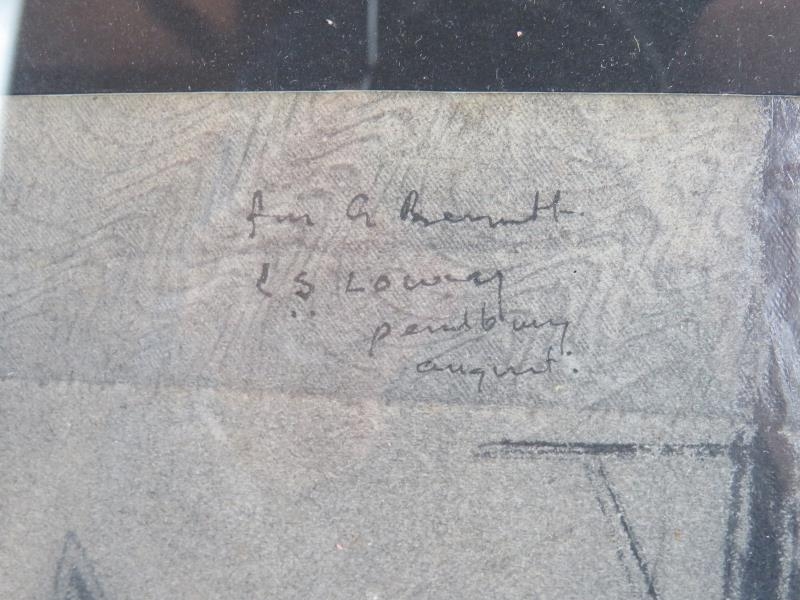 for G Bennett.
L S Lowry
pendlbury
august: